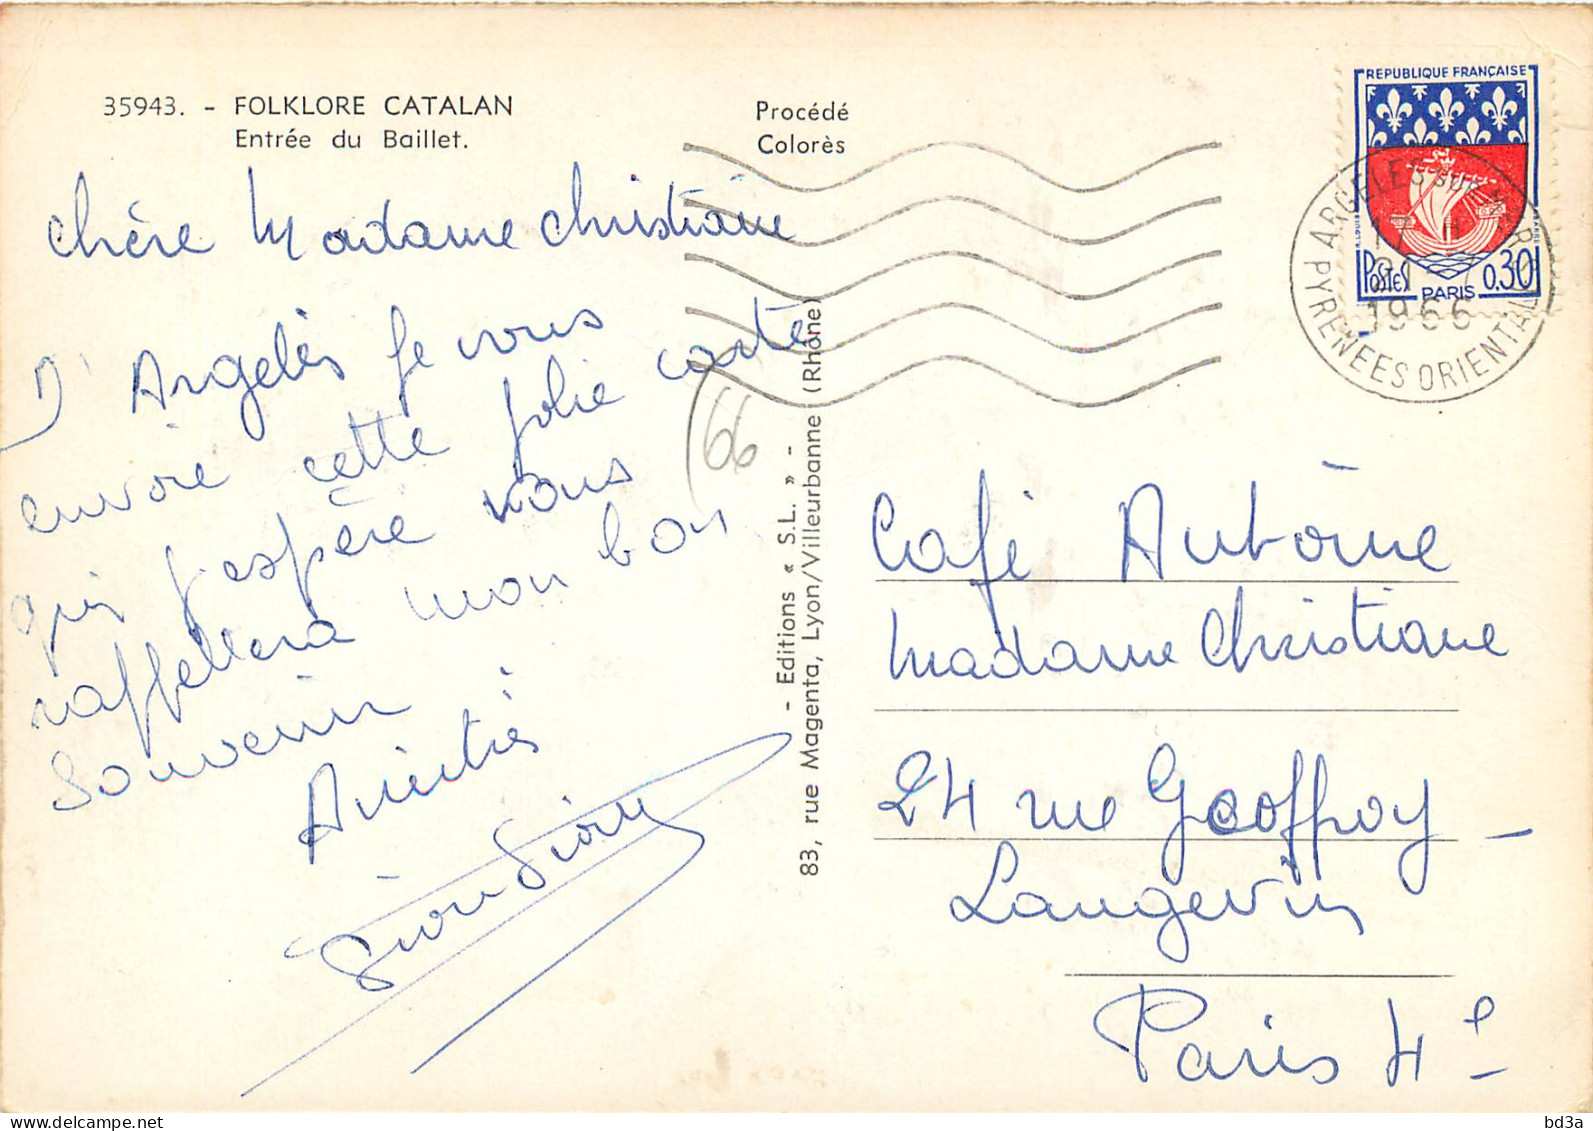 35943. - FOLKLORE CATALAN
Entrée du Baillet.
Procédé
Colorès
REPUBLIQUE FRANÇAISE
POSTES
PARIS
0,30
ARGELES SUR MER
17 H
1966
PYRENEES ORIENTALES
chère Madame Christiane
D'Argelès je vous
envoie cette jolie carte
qui j'espère vous
rappellera mon bon
souvenir
Amitiés
(66
- Editions « S.L. » -
83, rue Magenta, Lyon/Villeurbanne (Rhône)
Café Antoine
Madame Christiane
24 rue Geoffroy -
Langevin
Paris 4e
bd3a